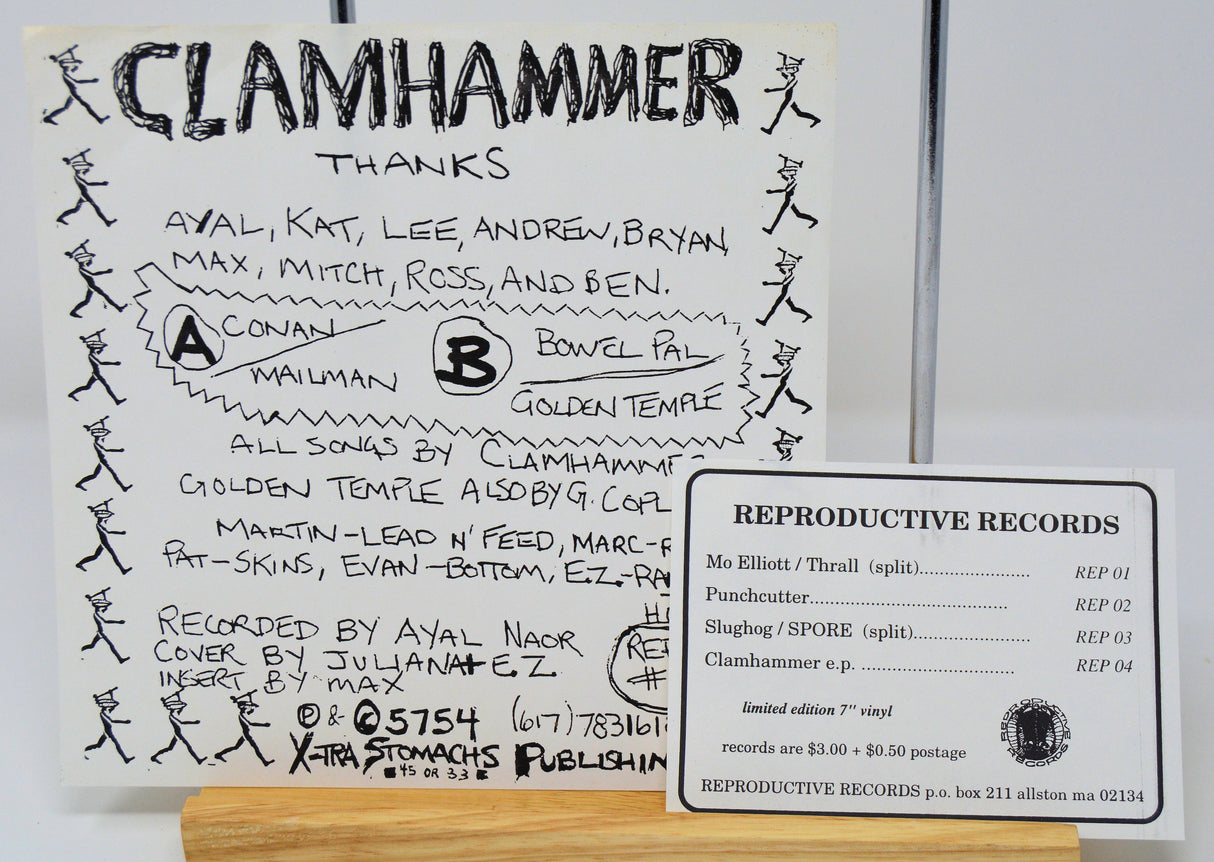 CLAMHAMMER
THANKS
AYAL, KAT, LEE, ANDREW, BRYAN,
MAX, MITCH, ROSS, AND BEN.
A CONAN
MAILMAN
B BOWEL PAL
GOLDEN TEMPLE
ALL SONGS BY CLAMHAMME
GOLDEN TEMPLE ALSO BY G. COPL
MARTIN-LEAD N' FEED, MARC-R
PAT-SKINS, EVAN-BOTTOM, E.Z.-RA
RECORDED BY AYAL NAOR
COVER BY JULIANA + E.Z.
INSERT BY MAX
RE
#
Ⓟ & © 5754 (617) 783161
X-TRA STOMACHS PUBLISHIN
45 OR 33
REPRODUCTIVE RECORDS
Mo Elliott / Thrall (split)...................... REP 01
Punchcutter....................................... REP 02
Slughog / SPORE (split)....................... REP 03
Clamhammer e.p. .............................. REP 04
limited edition 7" vinyl
records are $3.00 + $0.50 postage
REPRODUCTIVE RECORDS
REPRODUCTIVE RECORDS p.o. box 211 allston ma 02134